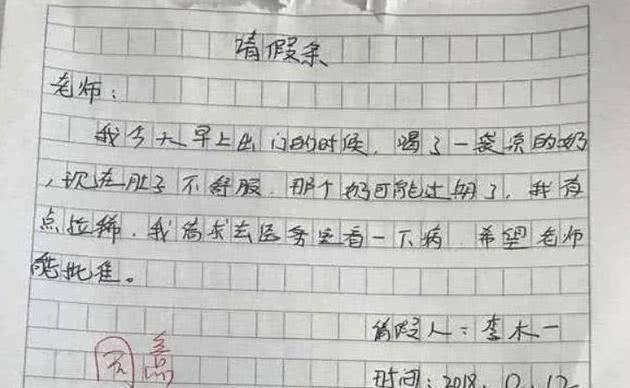 请假条
老师：
我今天早上出门的时候，喝了一袋凉的奶
，现在肚子不舒服，那个奶可能过期了，我有
点拉稀，我请求去医务室看一下病，希望老师
能批准。
请假人：李木一
时间：2018.